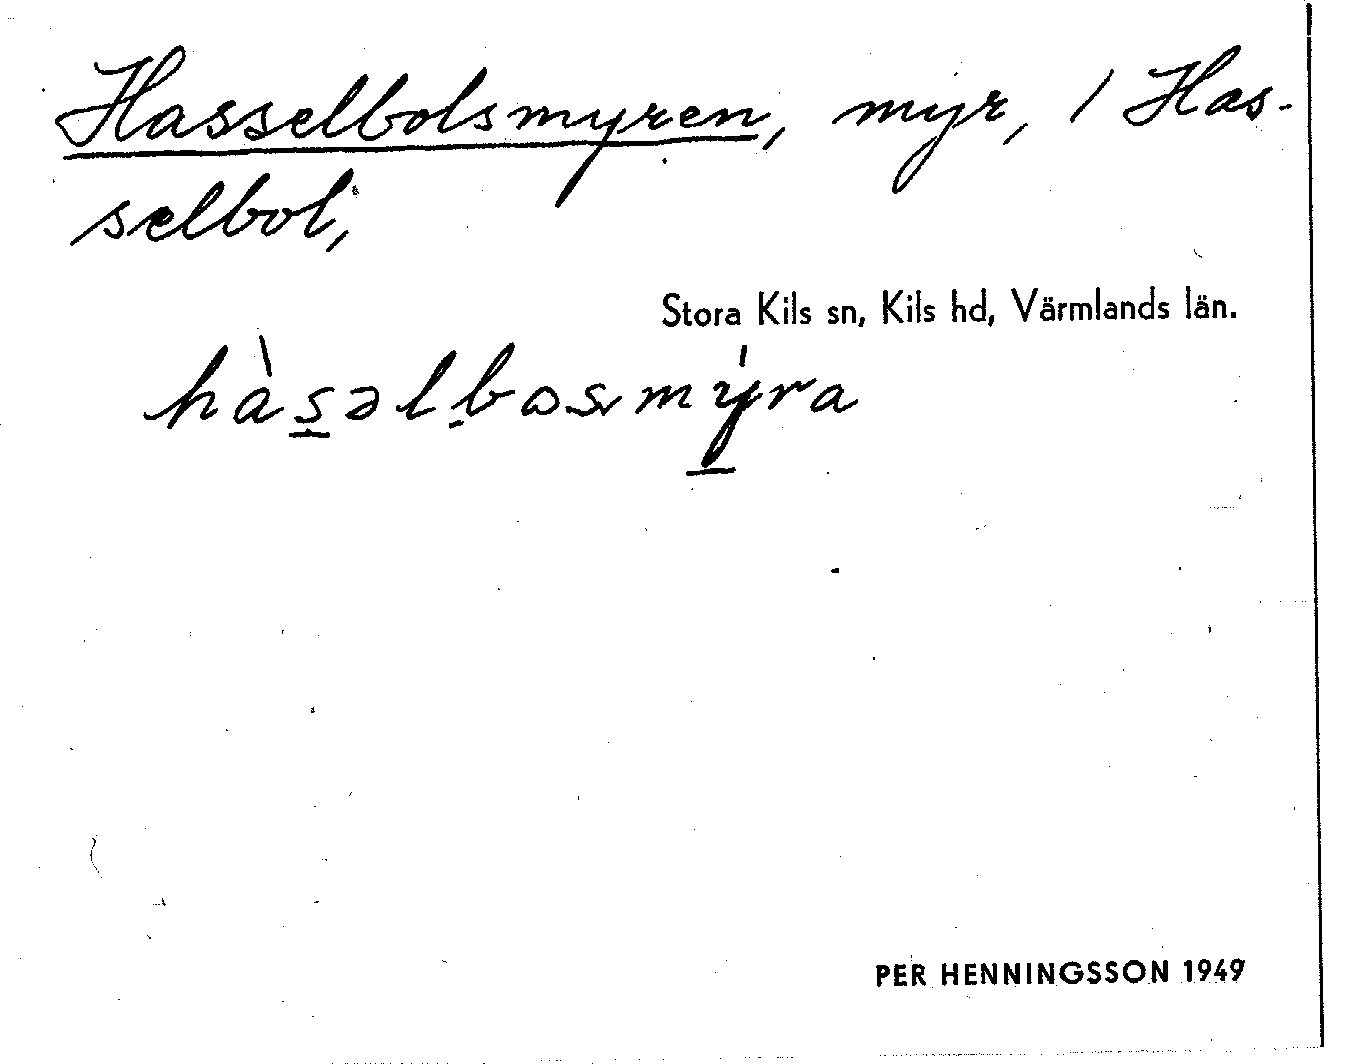 Hasselbolsmyren, myr, / Has-
selbol,
Stora Kils sn, Kils hd, Värmlands län.
hàs̲əlḅosmý̲ra
PER HENNINGSSON 1949